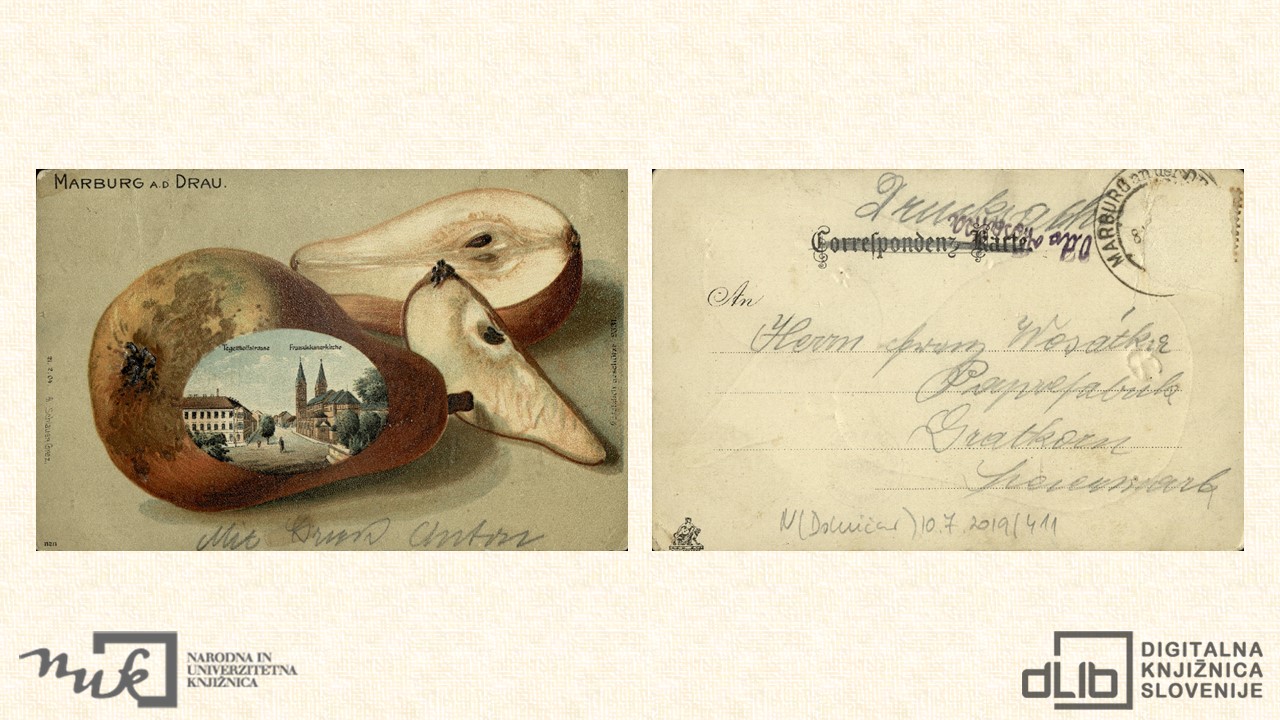 MARBURG A.D. DRAU.
Tegetthoffstrasse Franziskanerkirche
Mit Gruß Anton
Drucksache
Correspondenz-Karte
MARBURG
An
Herrn Franz Wosátka
Papierfabrik
Gratkorn
Steiermark
N(Dolničar)10.7.2019/411
nuk
NARODNA IN
UNIVERZITETNA
KNJIŽNICA
dLib
DIGITALNA
KNJIŽNICA
SLOVENIJE